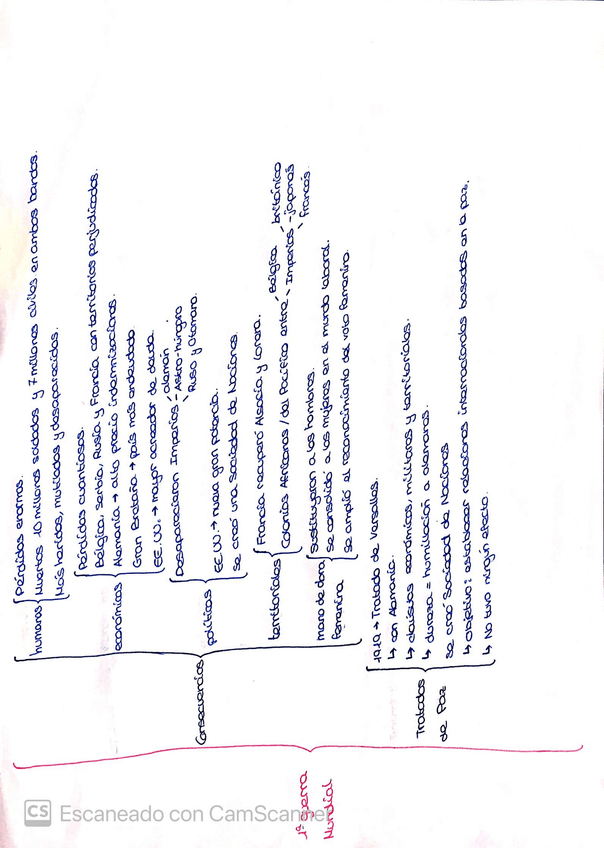 1ª guerra
Mundial
Consecuencias
humanas
Pérdidas enormes.
Muertos 10 millones soldados y 7 millones civiles en ambos bandos.
Más heridos, mutilados y desaparecidos.
económicas
Pérdidas cuantiosas.
Bélgica, Serbia, Rusia y Francia con territorios perjudicados.
Alemania → alto precio indemnizaciones.
Gran Bretaña → país más endeudado
EE.UU. → mayor acreedor de deuda.
políticas
Desaparecieron Imperios - alemán.
- Astro-húngro
- Ruso y Otomano.
EE.UU. → nueva gran potencia.
Se creó una Sociedad de Naciones
territoriales
Francia recuperó Alsacia y Lorena.
Colonias Africanas / del Pacífico entre - Bélgica
- Imperios - británico
- japonés
- francés.
mano de obra
femenina
Sustituyeron a los hombres.
se consolidó a las mujeres en el mundo laboral.
se amplió el reconocimiento del voto femenino.
Tratados
de Paz
1919 → Tratado de Versalles.
↳ con Alemania.
↳ claúsulas económicas, militares y territoriales.
↳ dureza = humillación a alemanes.
se creó Sociedad de Naciones
↳ objetivo: establecer relaciones internacionales basadas en la paz.
↳ No tuvo ningún efecto.
CS Escaneado con CamScanner